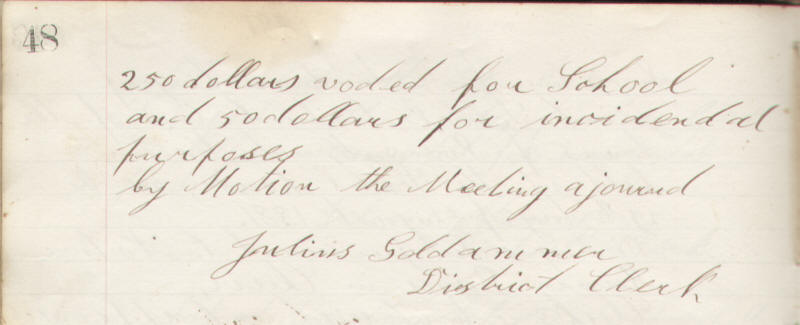 48
250 dollars voded for School
and 50 dollars for incidendal
purposes
by Motion the Meeting ajournd
Julius Goldammer
District Clerk